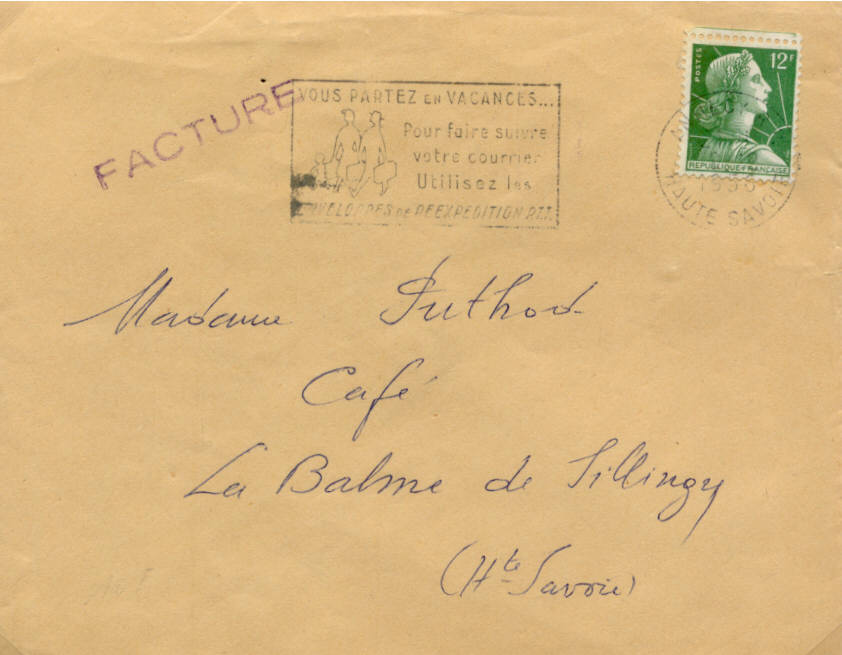 FACTURE
VOUS PARTEZ EN VACANCES...
Pour faire suivre
votre courrier
Utilisez les
ENVELOPPES DE REEXPEDITION P.T.T.
POSTES
12F
REPUBLIQUE FRANÇAISE
HAUTE SAVOIE
Madame Puthod
Café
La Balme de Sillingy
(Hte Savoie)